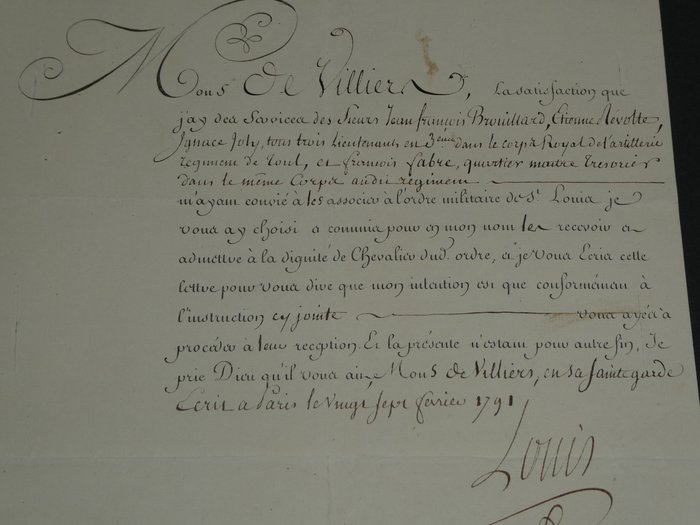 Mons. De Villiers, La satisfaction que
jay des Services des Sieurs Jean françois Brouillard, Etienne Révolte,
Ignace Joly, tous trois Lieutenants en 3.eme dans le corps Royal de l'artillerie
Regiment de Toul, et françois fabre, quartier maitre Tresorier
dans le même Corps audit regiment
m'ayant convié à les associer à l'ordre militaire de St. Louis je
vous ay choisi et commis pour en mon nom les recevoir et
admettre à la dignité de Chevalier dud. ordre, et je vous Ecris cette
lettre pour vous dire que mon intention est que conformément à
l'instruction cy jointe vous ayés à
procéder à leur reception. Et la présente n'estant pour autre fin, Je
prie Dieu qu'il vous ait Mons. de Villiers, en sa sainte garde
Ecrit a Paris le vingt sept fevrier 1791
Louis